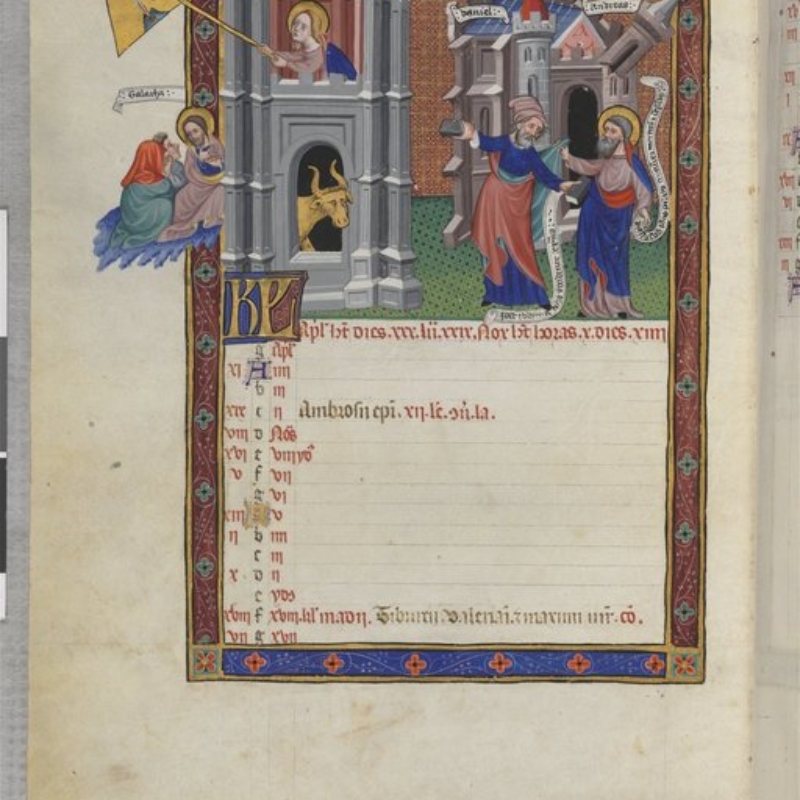 Daniel
Andreas
Galatha
KL
Apl' ht dies. xxx. lu. xxix. Nox ht horas. x. dies. xiiii
g Apl'
xi A iiii
b iii
xix c ii Ambrosii epi. xii. lc.
viii d Nōs
xvi e viii
v f vii
g vi
xiii A v
ii b iiii
c iii
x d ii
e yds
xviii f xviii. kl' madii. Tiburtii. Valeriāi. z maximi mr̄. cō.
vii g xvii